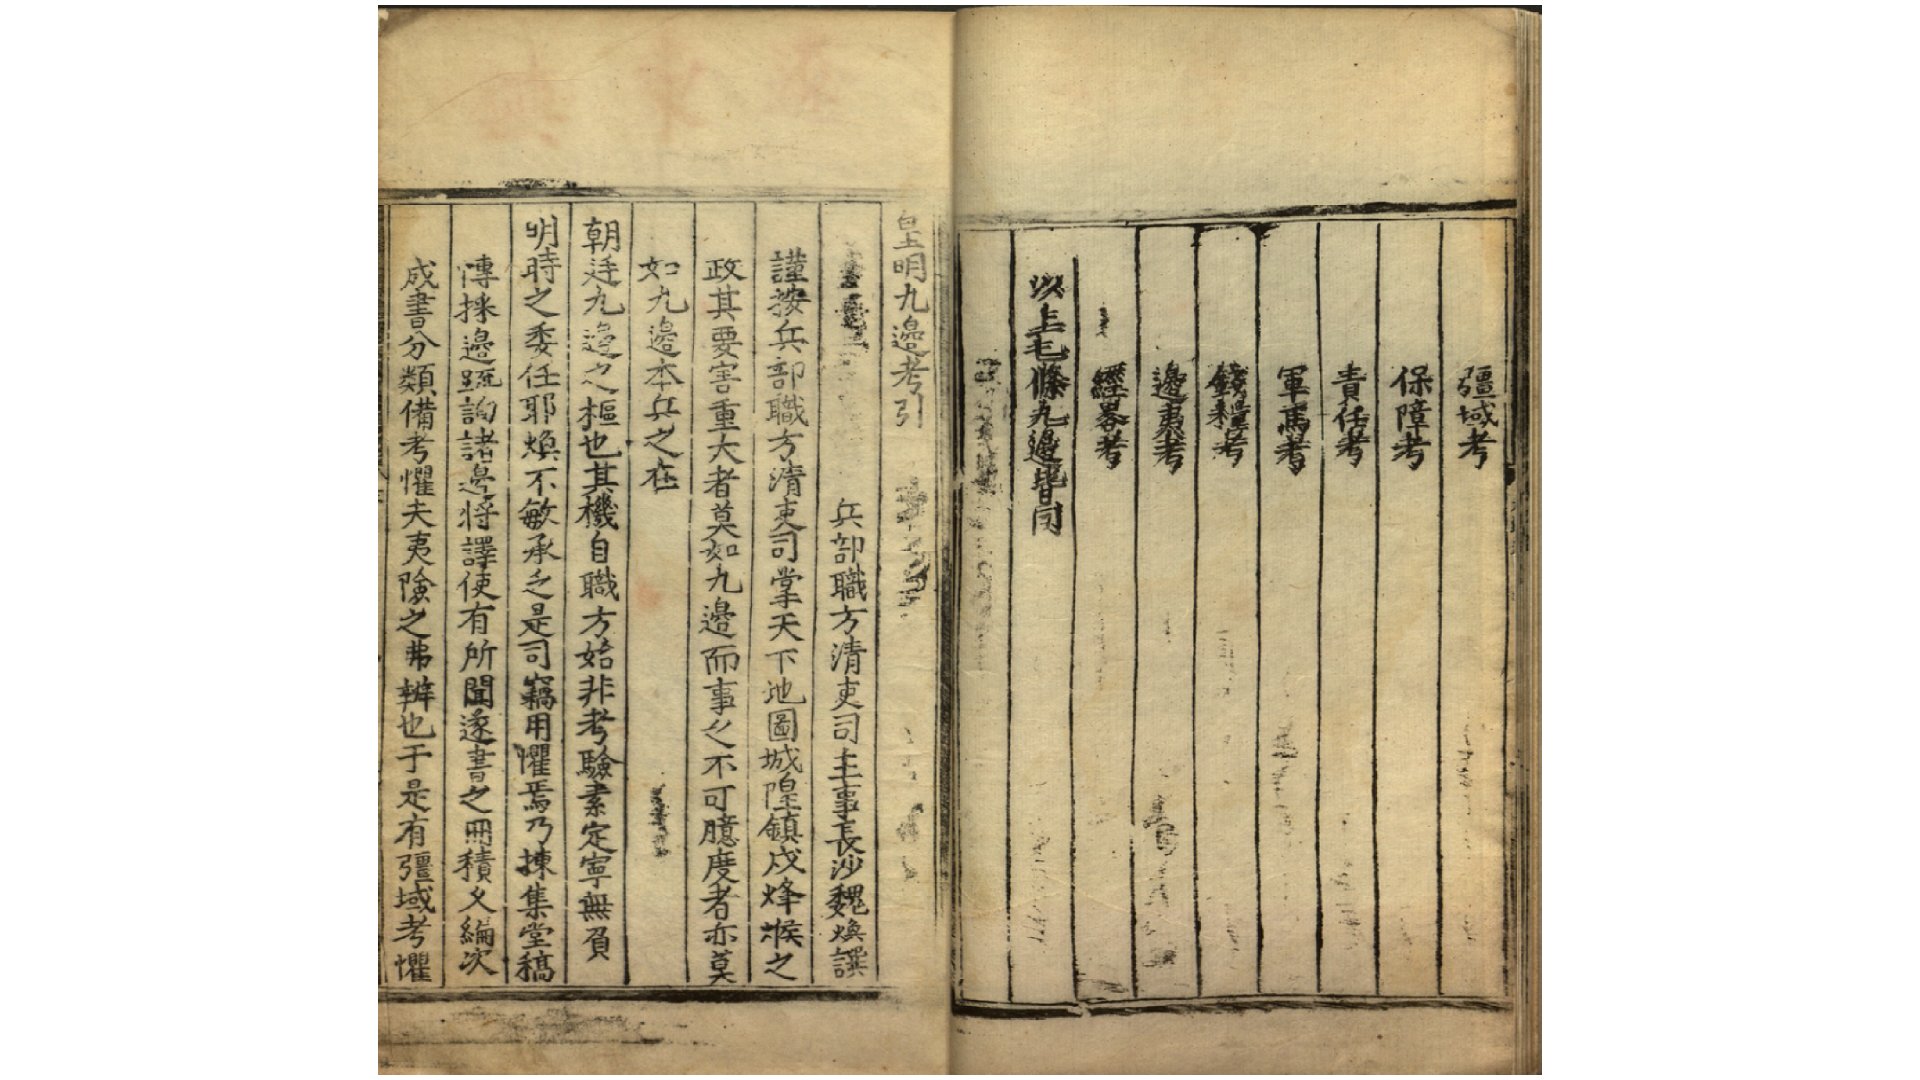 彊域考
保障考
責任考
軍馬考
錢糧考
邊夷考
經畧考
以上七條九邊皆同
皇明九邊考引
兵部職方清吏司主事長沙魏煥譔
謹按兵部職方清吏司掌天下地圖城隍鎮戍烽堠之
政其要害重大者莫如九邊而事之不可臆度者亦莫
如九邊本兵之在
朝廷九邊之樞也其機自職方始非考驗素定寧無負
明時之委任耶煥不敏承乏是司竊用懼焉乃揀集堂稿
博採邊疏詢諸邊將譯使有所聞遂書之冊積久編次
成書分類備考懼夫夷險之弗辨也于是有彊域考懼